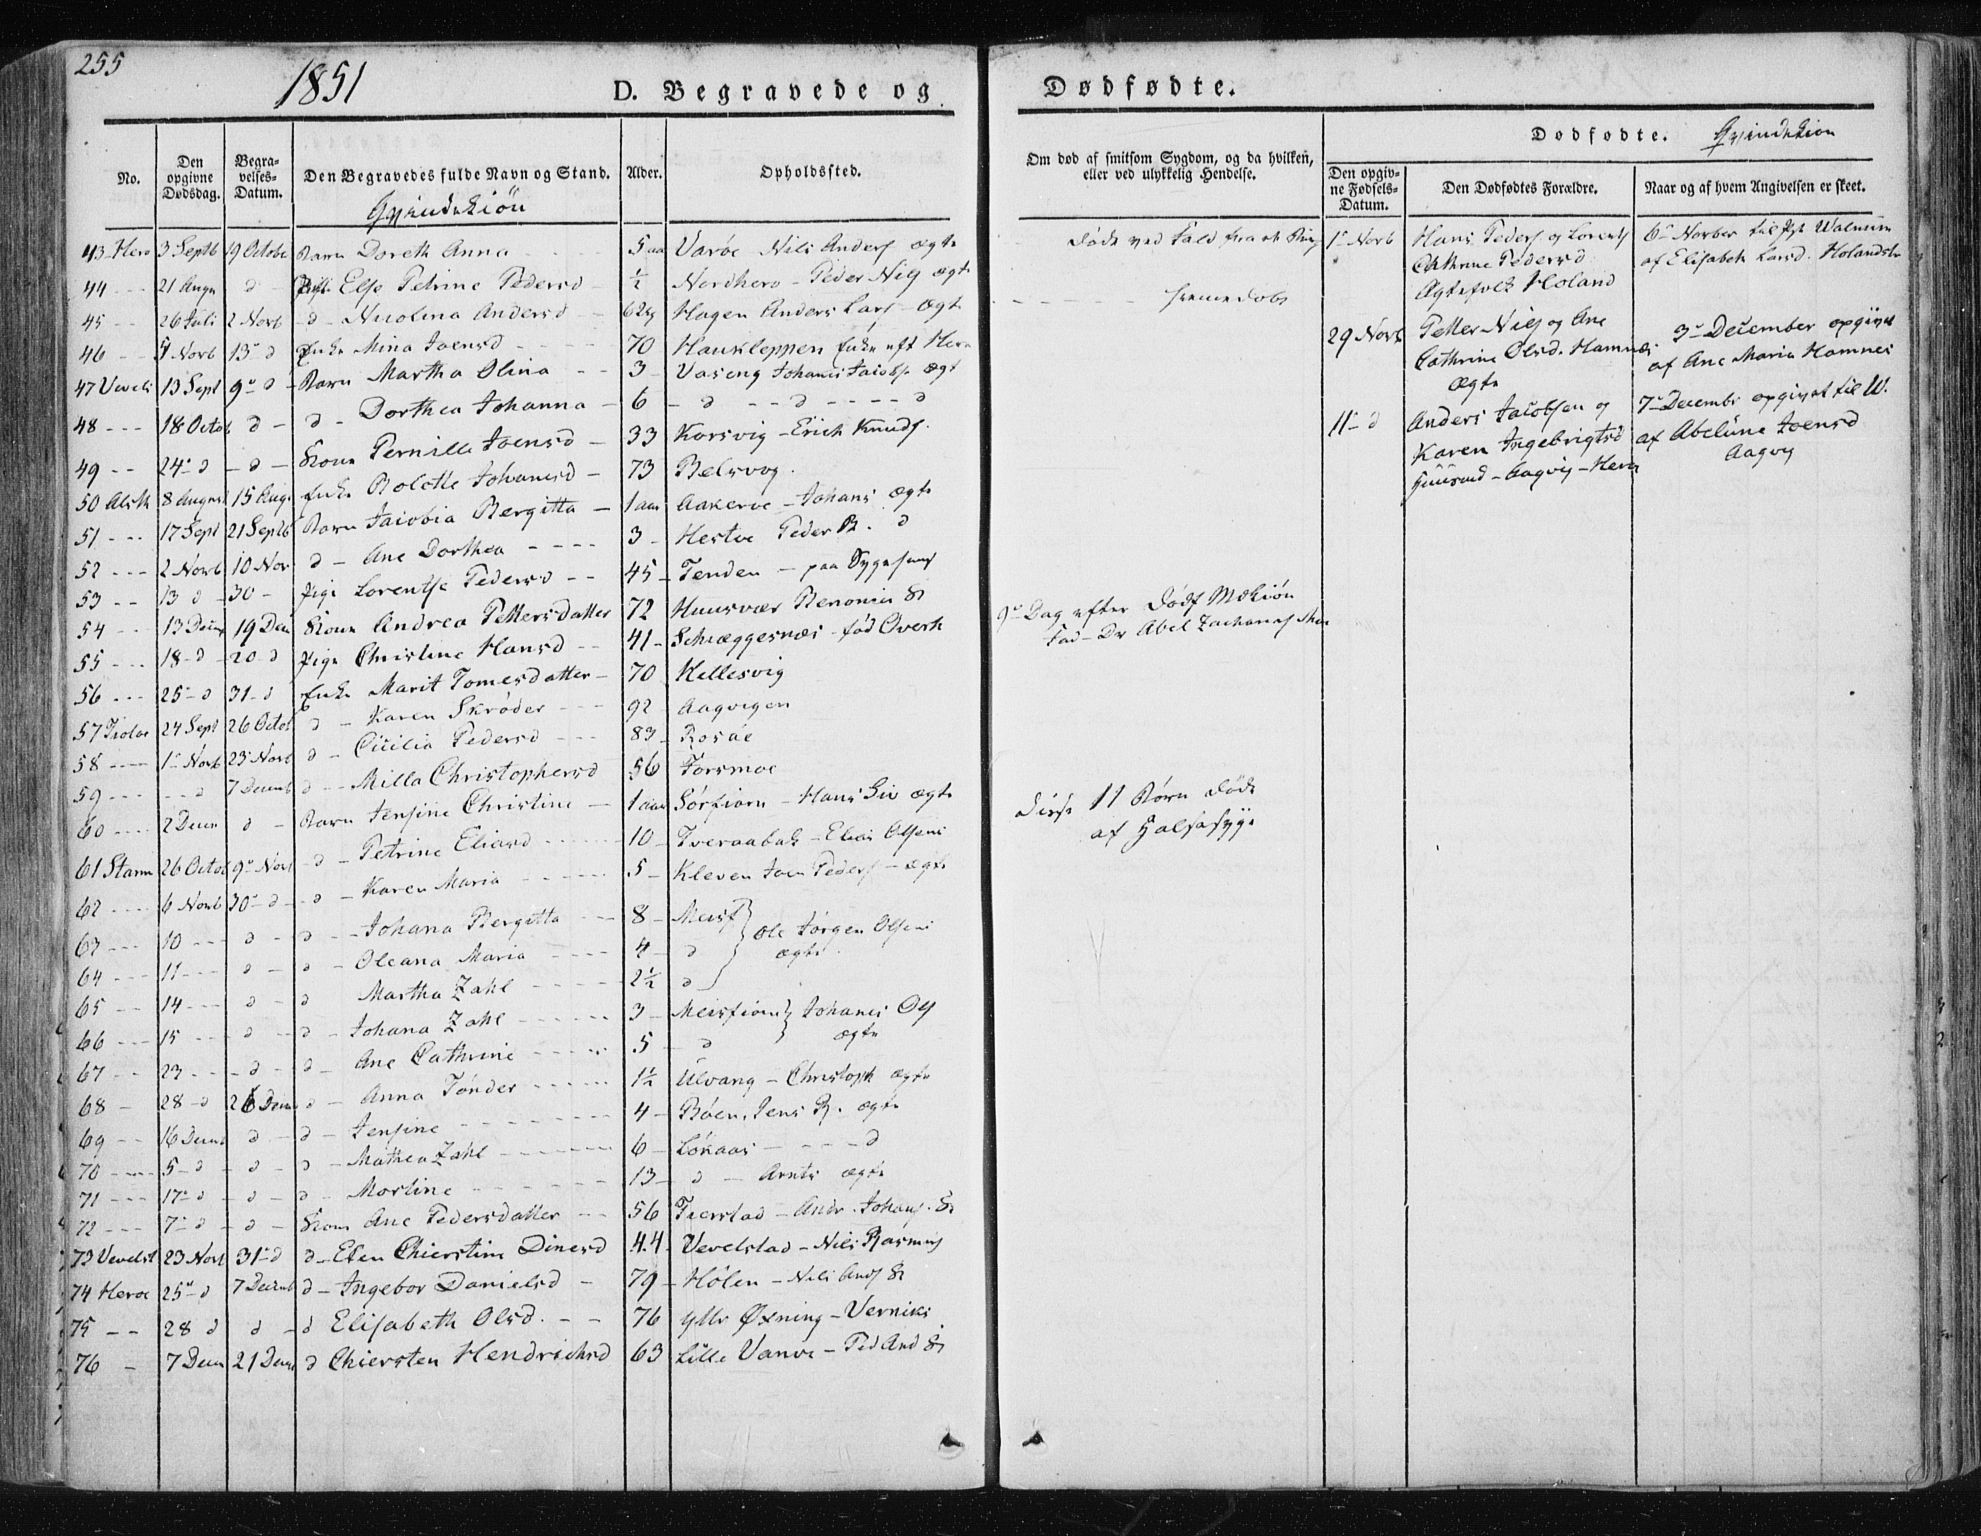 255
1851
D. Begravede og
Dødfødte.
Dødfødte. Qvindekiøn
No.
Den opgivne Dødsdag.
Begravelses-Datum.
Den Begravedes fulde Navn og Stand.
Qvindekiön
Alder.
Opholdssted.
Om død af smitsom Sygdom, og da hvilken, eller ved ulykkelig Hendelse.
Den opgivne Fødsels-Datum.
Den Dødfødtes Forældre.
Naar og af hvem Angivelsen er skeet.
43 Herø 3 Septb 19 Octobe Barn Doreth Anna 5 aa Varøe Nils Anders ægte
44 21 Augu d Else Petrine Pedersd ½ Nordhero Peder Nils ægte
45 26 Juli 2 Novb d Nicolina Andersd Hagen Anders Lars ægte
46 Novb 13 d Enke Mina Joensd 70 Haukleppen Enke eft Hera
47 Vevels 13 Sept 9 d Barn Martha Olina 3 Vaseng Johanes Jacobs ægt
48 18 Octob d d Dorthea Johanna 6 d d d
49 24 d d Kone Pernille Joensd 33 Korsvig Erich Knuds.
50 Alsth 8 August 15 Augs Enke Bolette Johanesd 73 Belsvog.
51 17 Sept 21 Septb Barn Jacobia Bergitta 1 aar Aakerøe Johans ægte
52 2 Novb 10 Nov d Ane Dorthea 3 Hestøe Peder B. d
53 13 d 30 Pige Lorentse Pedersd 45 Tenden paa Sygehuus
54 13 Decmb 19 Dec Kone Andrea Pettersdatter 72 Huusvær Benonies
55 18 d 20 d Pige Christine Hansd 41 Schieggesnæs fød Overh
56 25 d 31 d Enke Marit Tomesdatter 70 Kellesvig
57 Tiøtøe 24 Sept 26 Octob d Karen Skrøder 92 Aagvigen
58 1 Novb 23 Novb d Cicilia Pedersd 83 Rosøe
59 d 7 Decmb d Milla Christophersd 56 Forsmoe
60 2 Decm d Barn Jensine Christine 1 aar Sörfiorn Hans Siv ægte
61 Stamn 26 Octob 9 Novb d Petrine Eliasd 10 Tveraabak Elias Olsens
62 6 Novb 30 d d Karen Maria 5 Kleven Joen Peders ægte
63 10 d d Johana Bergitta 8 Meisf Ole Jørgen Olsens
64 11 d d Oleana Maria 4 d ægte
65 14 d d Martha Zahl 2½ d
66 15 d d Johana Zahl 3 Meisfiord Johanes Ols
67 23 d d Ane Cathrine 5 d ægte
68 28 d 26 Decm d Anna Tønder 1½ Ulvang Christoph ægte
69 16 Decmb d d Jensine 4 Bøen, Jens B. ægte
70 5 d d d Mathea Zahl 6 Løkaas d
71 17 d d d Mortine 13 d Arnts ægte
72 7 d d Kone Ane Pedersdatter 56 Tierstad Andr. Johans.
73 Vevelst 23 Novb 31 d d Elen Chierstine Dinesd 44 Vevelstad Nils Rasmus
74 Herøe 25 d 7 Decmb d Ingebor Danielsd 79 Hølen Nils Ands
75 28 d d d Elisabeth Olsd. 76 Øxning Verniks
76 7 Decm 21 Decm d Chiersten Hendrichsd 63 Lille Vanve Ped And
døde ved Fald fra et
hiemedøbt
9 Dag efter død
Abel Zacharias
disse 11 Børn døde
af Halsesyge
1 Novb Hans Peders og Lorents
Cathrine Pedersd
Ægtefolk Holand
6 Novber til
af Elisabeth Larsd. Holandst
29 Novb Petter Nils og Ane
Cathrine Olsd. Hamnæs
ægte
3 December opgivet
af Ane Maria Hamnes
11 d Anders Jacobsen og
Karen Ingebrigtsd
Huusmd Aagvig Herø
7 Decembr opgivet til W.
af Abelüne Joensd
Aagvig